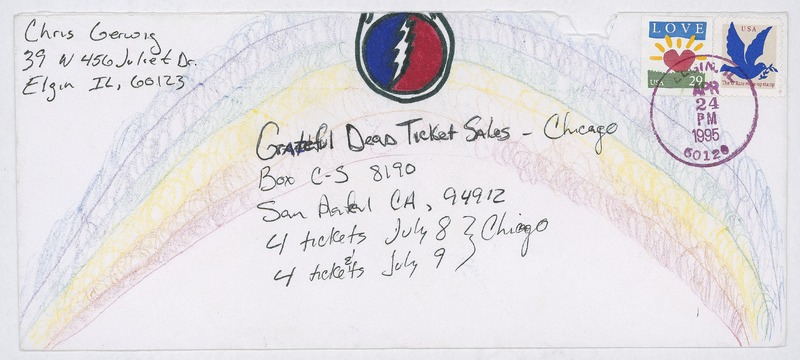 Chris Gerwig
39 W 456 Juliet Dr.
Elgin IL, 60123
LOVE
USA
29
USA
ELGIN, IL
APR
24
PM
1995
60120
Grateful Dead Ticket Sales - Chicago
Box C-S 8190
San Rafael CA, 94912
4 tickets July 8 } Chicago
&
4 tickets July 9